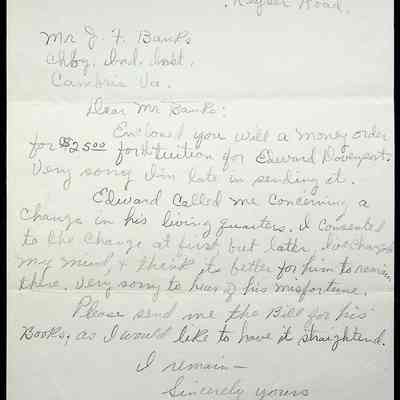 Keyser Road.
Mr J. F. Banks
Chbg. Ind. Inst.
Cambria Va.
Dear Mr Banks:
Enclosed you will a money order
for $25.00 for tuition for Edward Davenport.
Very sorry I'm late in sending it.
Edward called me concerning a
change in his living quarters. I consented
to the change at first but later, I've changed
my mind, & think its better for him to remain
there. Very sorry to hear of his misfortune.
Please send me the Bill for his
Books, as I would like to have it straightend.
I remain—
Sincerely yours